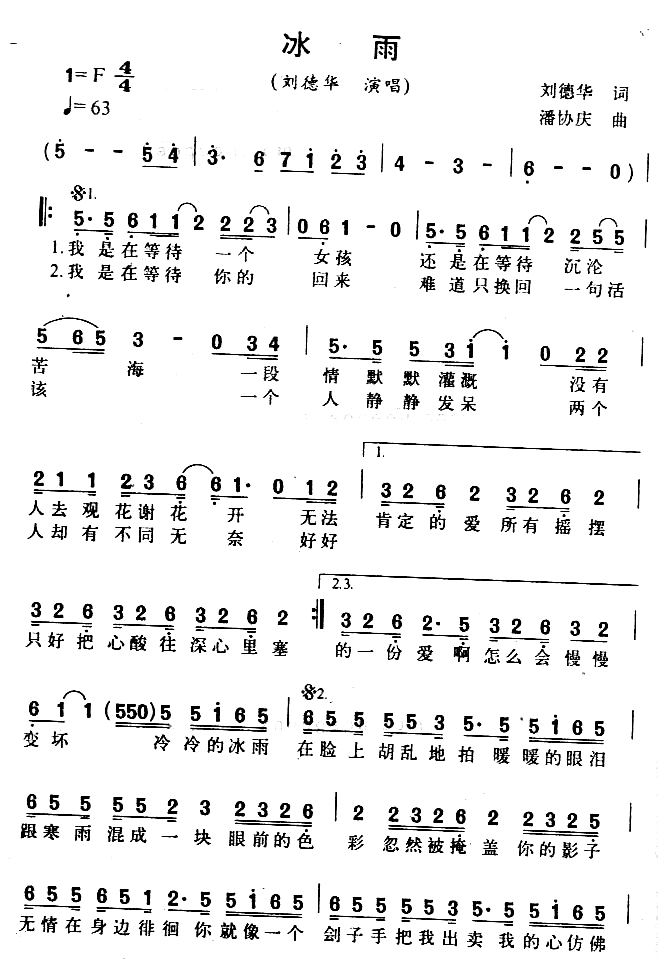 冰 雨
1=F 4/4
(刘德华 演唱)
刘德华 词
♩=63
潘协庆 曲
(5 - - 54 | 3· 67123 | 4 - 3 - | 6 - - 0) |
𝄋1.
‖: 5·5611 2 2223 | 061 - 0 | 5·5611 2 255 |
1.我是在等待 一个 女孩 还是在等待 沉沦
2.我是在等待 你的 回来 难道只换回 一句话
565 3 - 0 34 | 5·5 531 1 0 22 |
苦 海 一段 情默默灌溉 没有
该 一个 人静静发呆 两个
211 236 61· 0 12 | 1. 326 2 326 2 |
人去观花谢花 开 无法 肯定的爱所有摇摆
人却有不同无 奈 好好
326 326 326 2 :‖ 2.3. 326 2·5 326 32 |
只好把心酸往深心里塞 的一份爱啊怎么会慢慢
61 1 (550)5 5165 | 𝄋2. 655 553 5·5 5165 |
变坏 冷冷的冰雨 在脸上胡乱地拍 暖暖的眼泪
655 552 3 2326 | 2 2326 2 2325 |
跟寒雨混成一块 眼前的色 彩 忽然被掩盖 你的影子
655 651 2·5 5165 | 655 555 5 5165 |
无情在身边徘徊 你就像一个 刽子手把我出卖 我的心仿佛